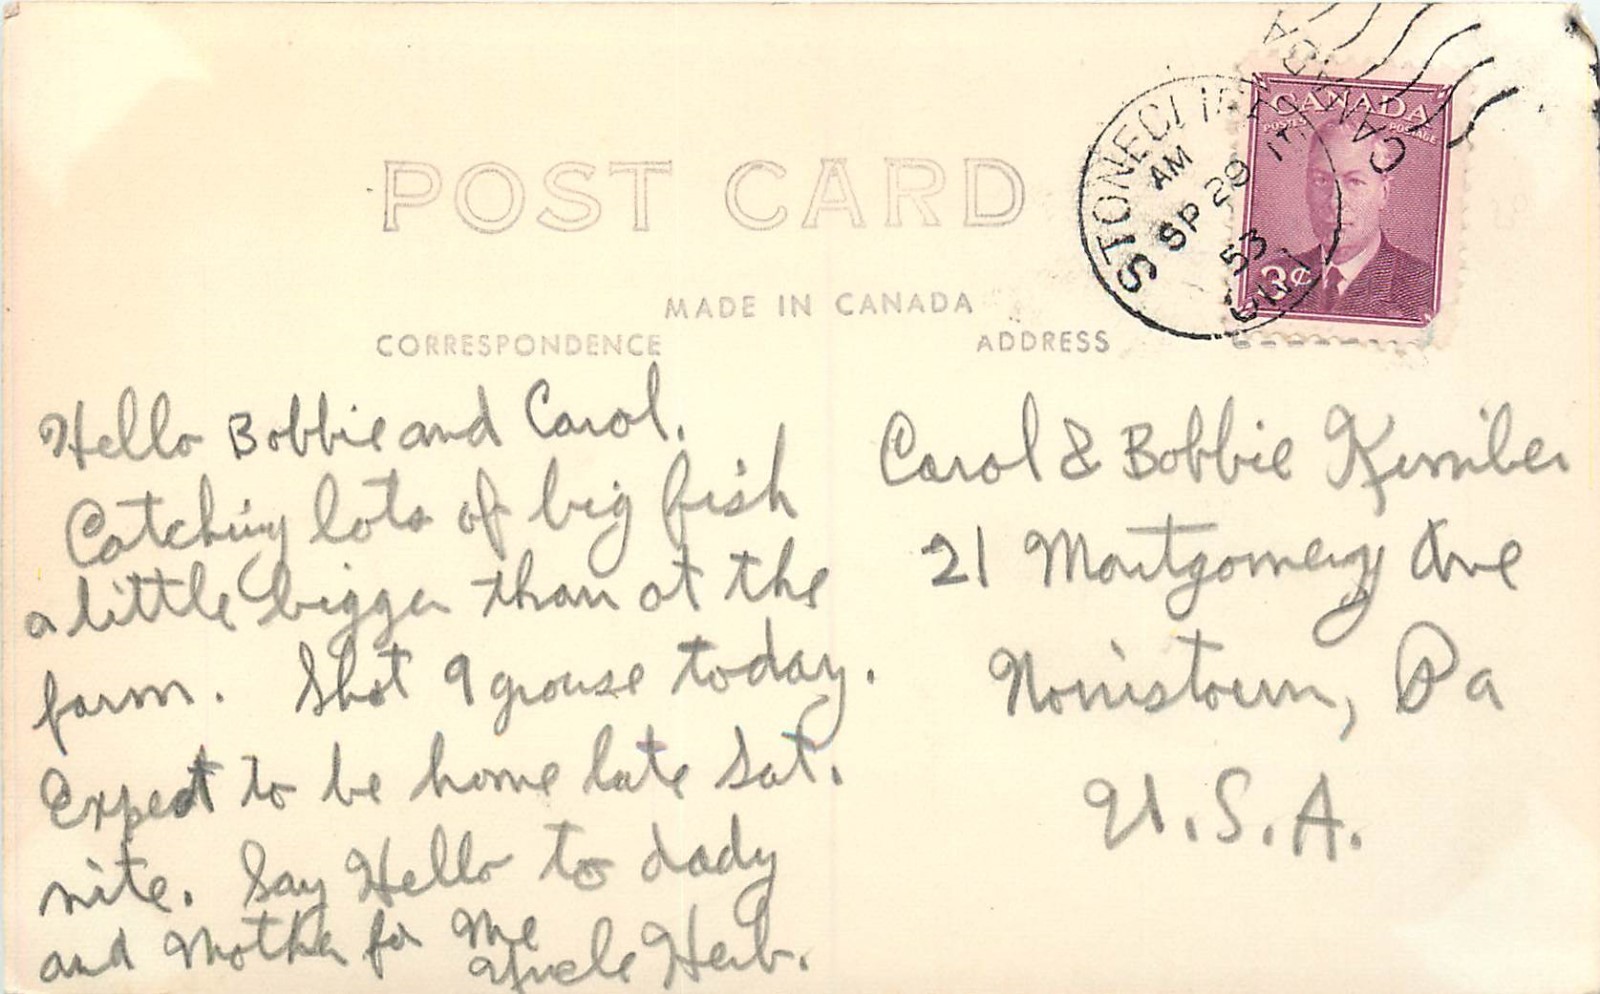 POST CARD
MADE IN CANADA
CORRESPONDENCE
ADDRESS
STONECLIFFE
AM
SP 29
53
ONT.
CANADA
CANADA
POSTES POSTAGE
3¢
Hello Bobbie and Carol.
Catching lots of big fish
a little bigger than at the
farm. Shot 9 grouse today.
Expect to be home late Sat.
nite. Say Hello to dady
and Mother for Me
Uncle Herb.
Carol & Bobbie
21 Montgomery Ave
Norristown, Pa
U.S.A.